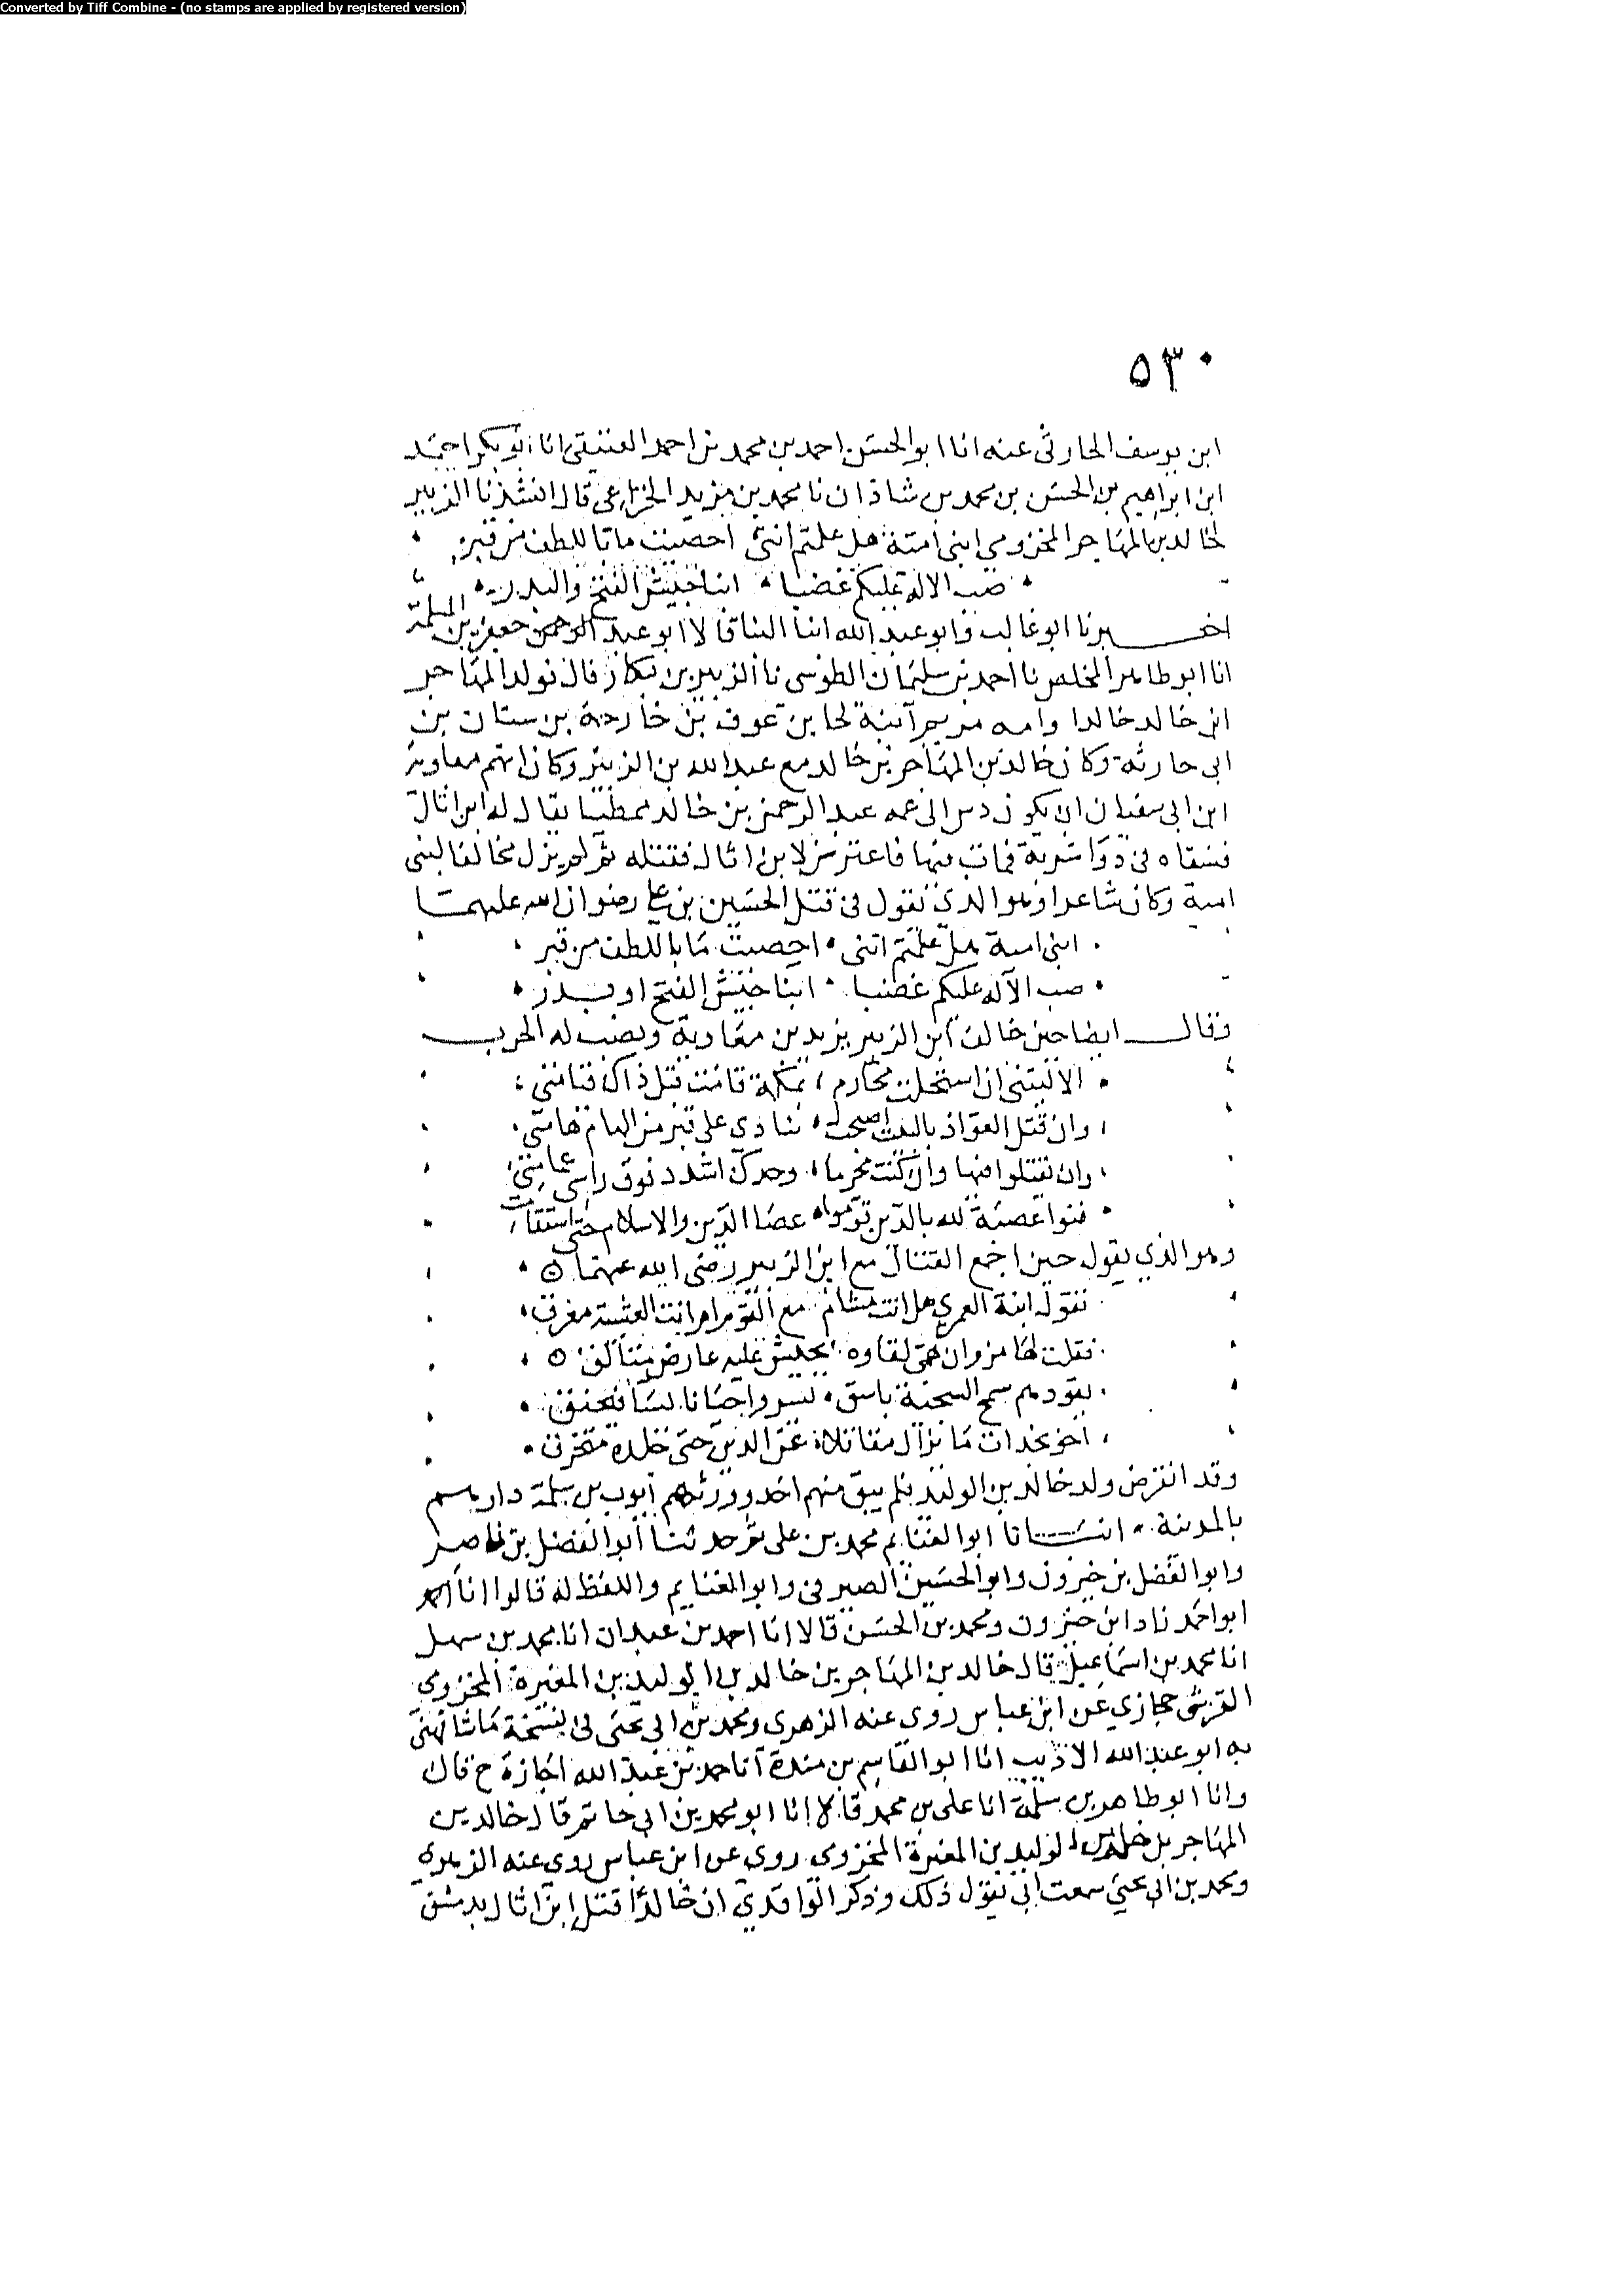 Converted by Tiff Combine - (no stamps are applied by registered version)
٥٣٠
ابن يوسف الحارثى عنه انا ابو الحسن احمد بن محمد بن احمد العتيقى انا ابو بكر احمد
ابن ابراهيم بن الحسن بن محمد بن شاذان نا محمد بن مزيد الخزاعى قال انشدنا الزبير
لخالد بن المهاجر المخزومى ابنى امية هل علمتم اننى احصيت ماتا للطف من قبر
صب الاله عليكم غضبا ابنا جيش الفتح والبدر
اخبرنا ابو غالب وابو عبد الله ابنا البنا قالا ابو عبد الرحمن جعفر بن المسلمة
انا ابو طاهر المخلص نا احمد بن سليمان الطوسى نا الزبير بن بكار قال فولد المهاجر
ابن خالد خالدا وامه مريم ابنة لجا بن عوف بن خارجة بن سنان بن
ابى حارثة وكان خالد بن المهاجر بن خالد مع عبد الله بن الزبير وكان اتهم معاوية
ابن ابى سفيان ان يكون دس الى عمه عبد الرحمن بن خالد متطببا يقال له ابن اثال
فسقاه فى دوا شربة فمات منها فاعترض لابن اثال فقتله ثم لم يزل مخالفا لبنى
امية وكان شاعرا وهو الذى يقول فى قتل الحسين بن على رضوان الله عليهما
ابنى امية هل علمتم اننى احصيت مابا للطف من قبر
صب الاله عليكم غضبا ابنا جيش الفتح او بدر
وقال ايضا حين خالف ابن الزبير يزيد بن معاوية ونصب له الحرب
الا ليتنى ان استحلت محارم بمكة قامت قبل ذاك قيامتى
وان قتل العواذ بالبيت اصبحت تنادى على قبر من الهام هامتى
وان يقتلوا فيها وان كنت محرما وجدك اشدد فوق راسى عمامتى
فنوا عصبة لله بالدين قوموا عصا الدين والاسلام حتى استقامت
وهو الذي يقول حين اجمع القتال مع ابن الزبير رضى الله عنهما
تقول ابنة العمرى هل انت مشام مع القوم ام انت العشية معرق
فقلت لها مروان همى لقاوه بجيش عليه عارض متالق
يقودهم سمح السجية باسق يسر واحيانا يسا فيحنق
اخو نجدات ما يزال مقاتلا عن الدين حتى جلده متخرق
وقد انقرض ولد خالد بن الوليد فلم يبق منهم احد وورثهم ايوب بن سلمة دارهم
بالمدينة انبانا ابو الغنايم محمد بن على ثم حدثنا ابو الفضل بن ناصر
وابو الفضل بن خيرون وابو الحسين الصيرفى وابو الغنايم واللفظ له قالوا انا
ابو احمد زاد ابن خيرون ومحمد بن الحسن قالا انا احمد بن عبدان انا محمد بن سهل
انا محمد بن اسماعيل قال خالد بن المهاجر بن خالد بن الوليد بن المغيرة المخزومى
القرشى حجازي عن ابن عباس روى عنه الزهرى ومحمد بن ابى يحيى فى نسخة ما شافهنى
به ابو عبد الله الاديب انا ابو القاسم بن مندة انا حمد بن عبد الله اجازة ح قال
وانا ابو طاهر بن سلمة انا على بن محمد قالا انا ابو محمد بن ابى حاتم قال خالد بن
المهاجر بن خالد بن الوليد بن المغيرة المخزومى روى عن ابن عباس روى عنه الزهري
ومحمد بن ابى يحيى سمعت ابى يقول ذلك وذكر الواقدي ان خالدا قتل ابن اثال بدمشق